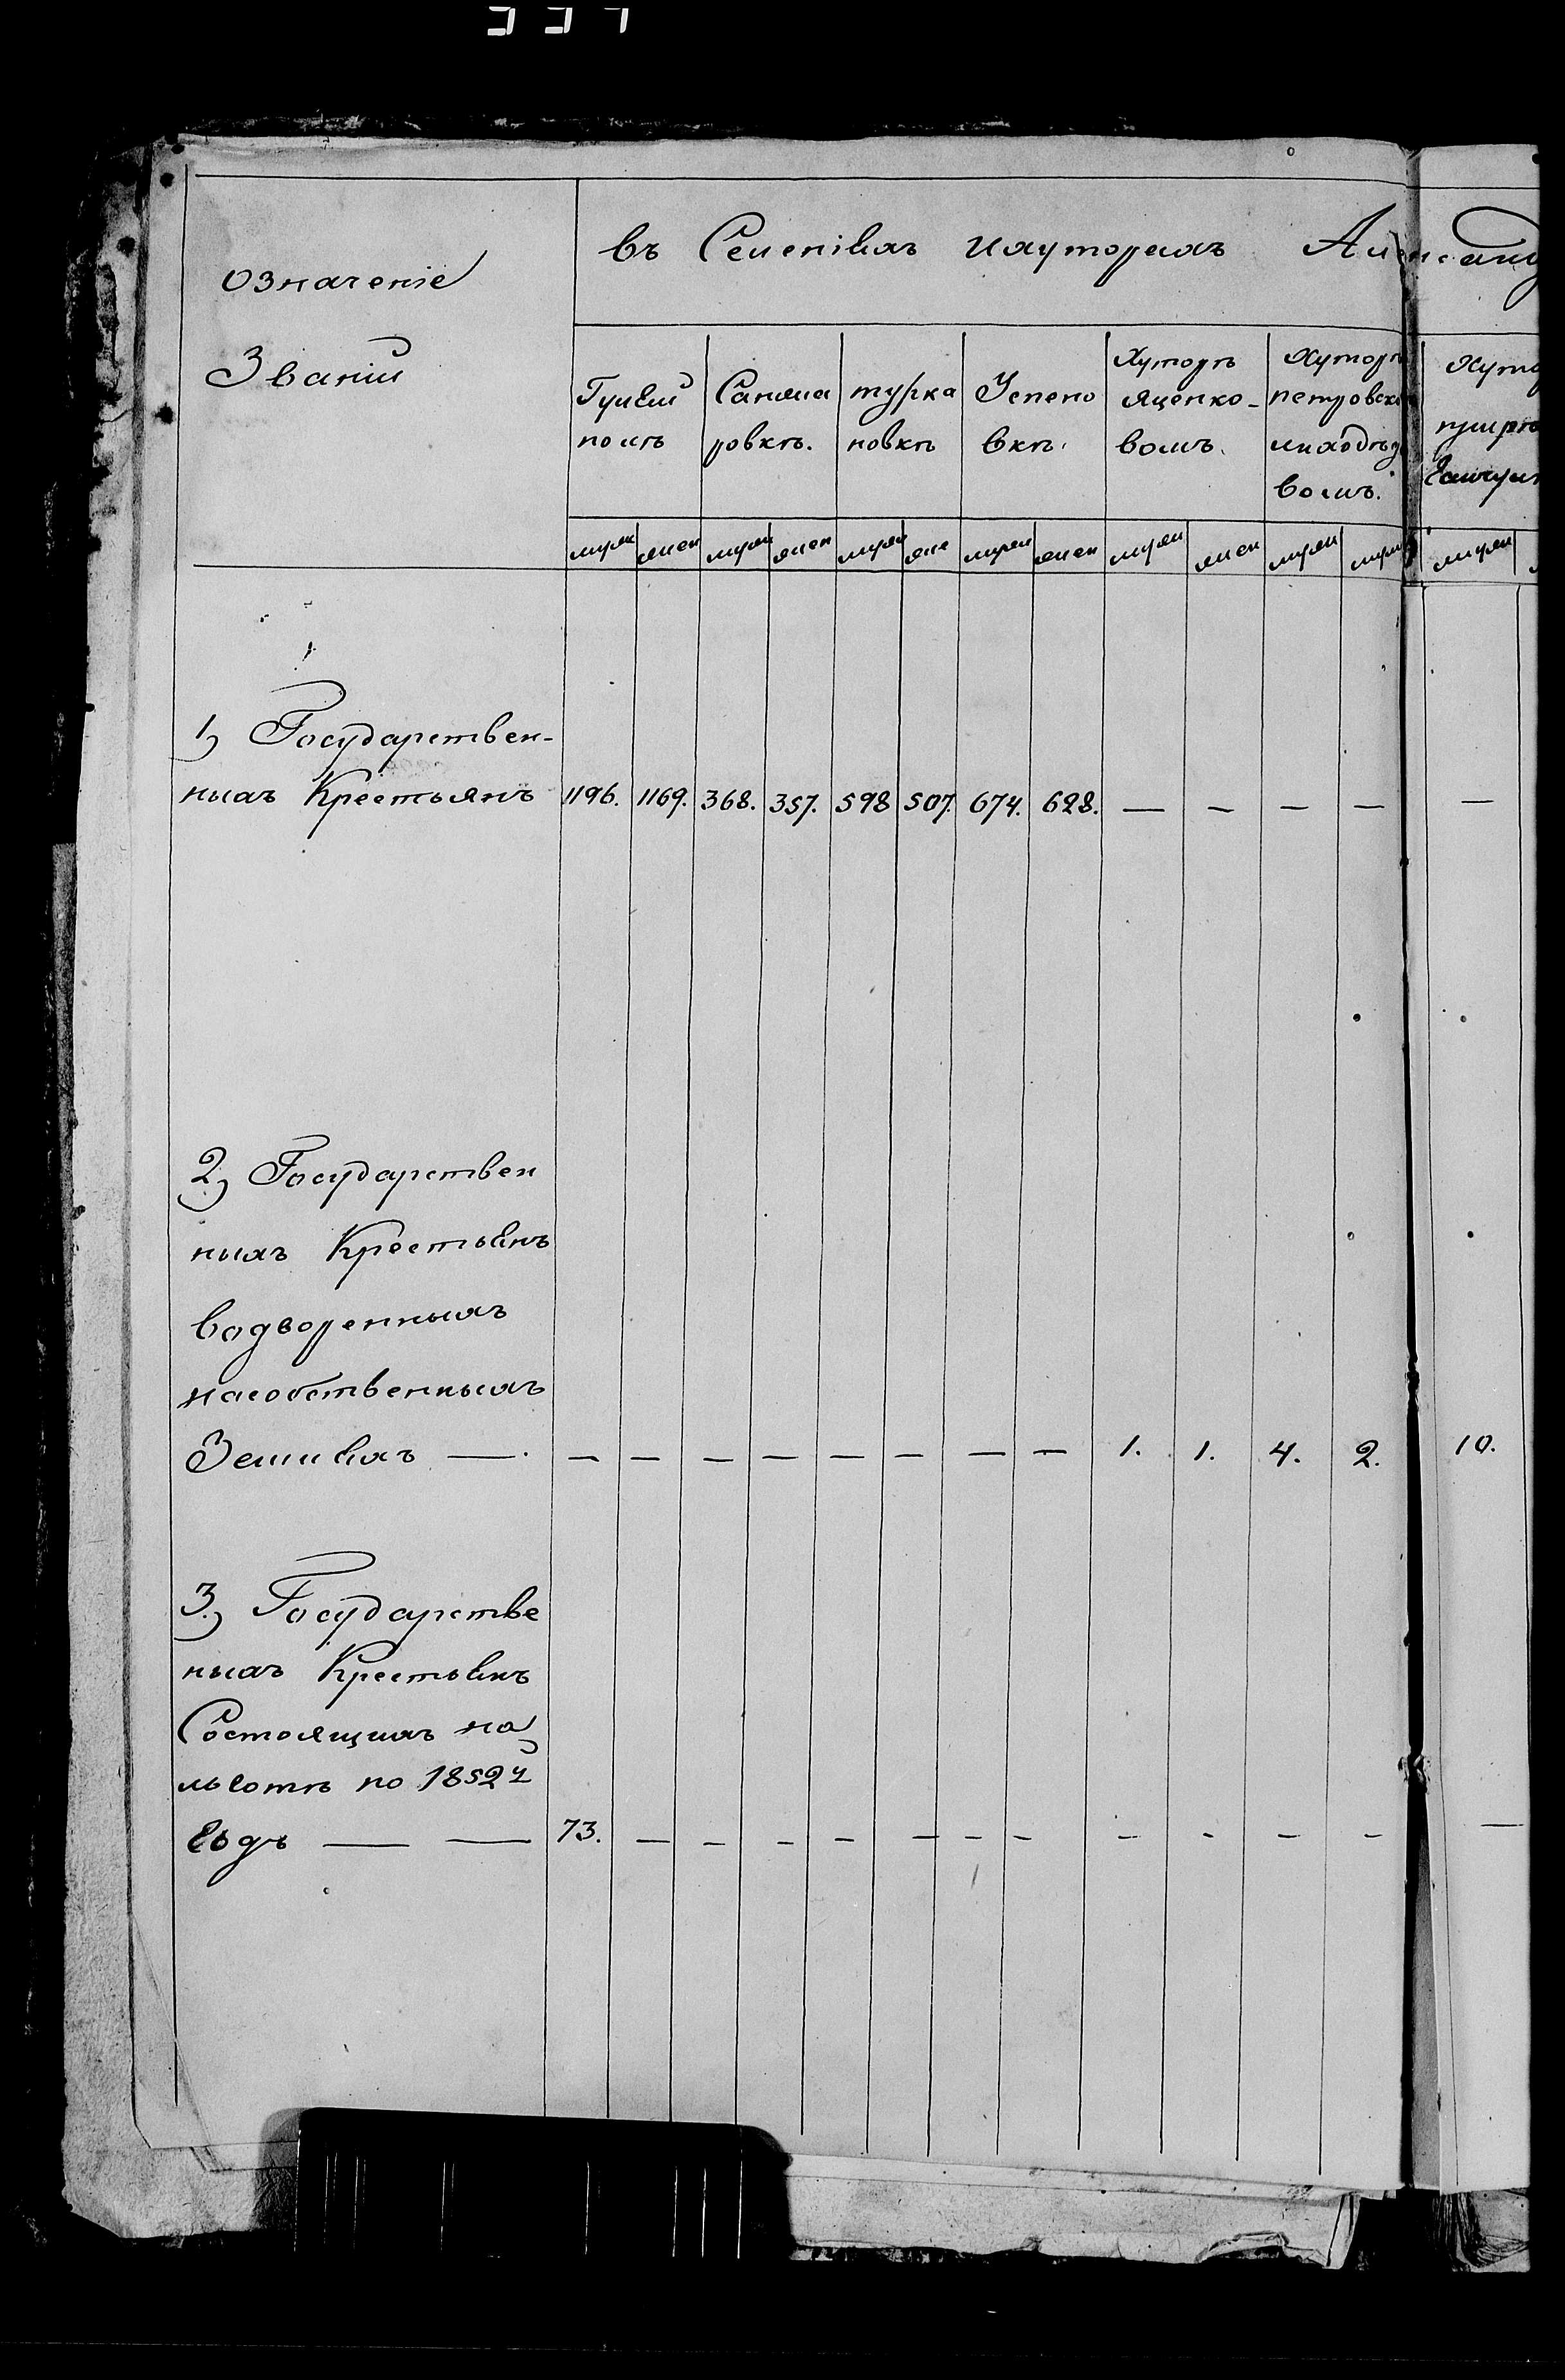 означеніе
Званій
въ Селеніяхъ ихуторахъ
Гуляй
полѣ
Санжа
ровкѣ.
турке
новкѣ
Успено
вкѣ.
Хуторѣ
Яценко-
вомъ.
Хуторѣ
петровско
вомъ.
муж жен муж жен муж же муж жен муж жен муж муж муж
1) Государствен-
ныхъ Крестьянъ 1196. 1169. 368. 357. 598 507. 674. 628. — — — — —
2) Государствен
ныхъ Крестьянъ
водворенныхъ
насобственныхъ
Земляхъ — — — — — — — — — 1. 1. 4. 2. 10.
3.) Государстве
ныхъ Крестьянъ
Состоящихъ на
льготѣ по 1852й
годъ — — 73. — — — — — — — — — — — —